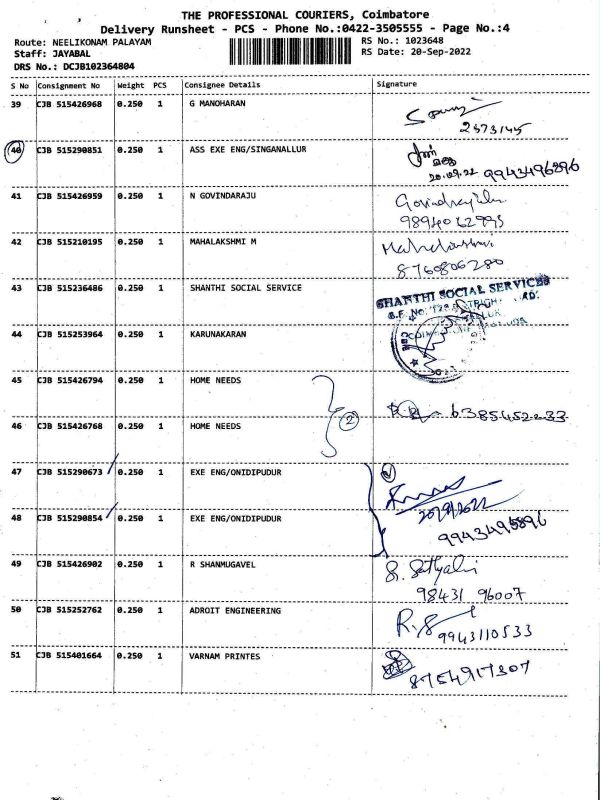 THE PROFESSIONAL COURIERS, Coimbatore
Delivery Runsheet - PCS - Phone No.:0422-3505555 - Page No.:4
Route: NEELIKONAM PALAYAM
Staff: JAYABAL
DRS No.: DCJB102364804
RS No.: 1023648
RS Date: 20-Sep-2022
S No Consignment No Weight PCS Consignee Details Signature
39 CJB 515426968 0.250 1 G MANOHARAN
2573145
40 CJB 515290851 0.250 1 ASS EXE ENG/SINGANALLUR
20.09.22 9943496896
41 CJB 515426959 0.250 1 N GOVINDARAJU
9894062993
42 CJB 515210195 0.250 1 MAHALAKSHMI M Mahalakshmi
8760806280
43 CJB 515236486 0.250 1 SHANTHI SOCIAL SERVICE
SHANTHI SOCIAL SERVICES
44 CJB 515253964 0.250 1 KARUNAKARAN
45 CJB 515426794 0.250 1 HOME NEEDS
6385452233
46 CJB 515426768 0.250 1 HOME NEEDS
2
47 CJB 515290673 0.250 1 EXE ENG/ONIDIPUDUR
20/9/2022
48 CJB 515290854 0.250 1 EXE ENG/ONIDIPUDUR
9943495896
49 CJB 515426902 0.250 1 R SHANMUGAVEL
98431 96007
50 CJB 515252762 0.250 1 ADROIT ENGINEERING
R.S 9943110533
51 CJB 515401664 0.250 1 VARNAM PRINTES
8754917307